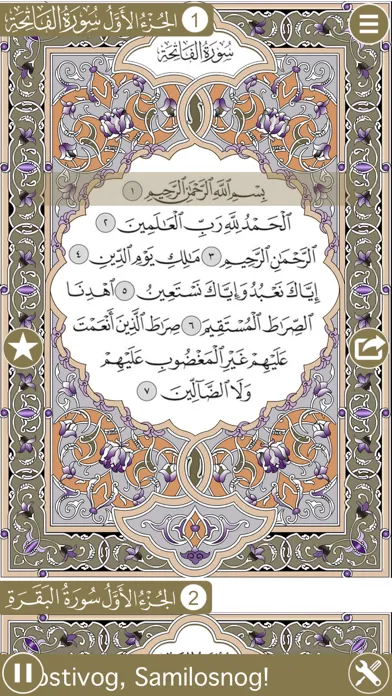 الجزء الأول سورة الفاتحة 1
سورة الفاتحة
بِسْمِ اللَّهِ الرَّحْمَٰنِ الرَّحِيمِ ١
الْحَمْدُ لِلَّهِ رَبِّ الْعَالَمِينَ ٢
الرَّحْمَٰنِ الرَّحِيمِ ٣ مَالِكِ يَوْمِ الدِّينِ ٤
إِيَّاكَ نَعْبُدُ وَإِيَّاكَ نَسْتَعِينُ ٥ اهْدِنَا
الصِّرَاطَ الْمُسْتَقِيمَ ٦ صِرَاطَ الَّذِينَ أَنْعَمْتَ
عَلَيْهِمْ غَيْرِ الْمَغْضُوبِ عَلَيْهِمْ
وَلَا الضَّالِّينَ ٧
الجُزْءُ الأَوَّلُ سُورَةُ البَقَرَة 2
ostivog, Samilosnog!